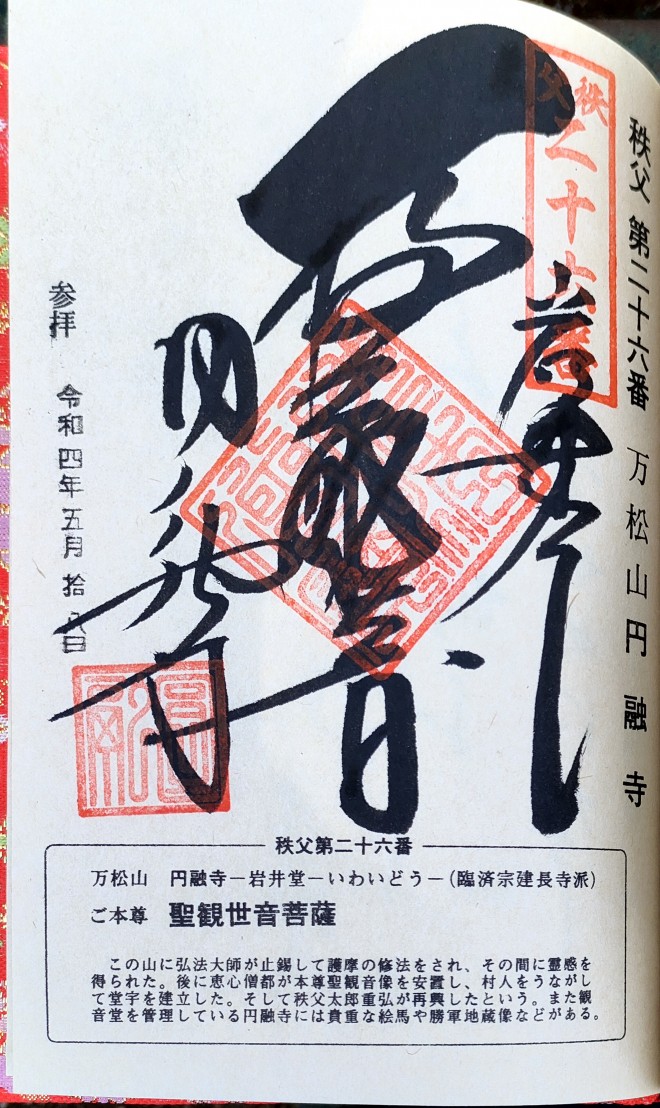 秩父 第二十六番 万松山円融寺
秩父二十六番
参拝 令和四年五月拾八日
秩父第二十六番
万松山 円融寺－岩井堂－いわいどう－(臨済宗建長寺派)
ご本尊 聖観世音菩薩
この山に弘法大師が止錫して護摩の修法をされ、その間に霊感を
得られた。後に恵心僧都が本尊聖観音像を安置し、村人をうながし
て堂宇を建立した。そして秩父太郎重弘が再興したという。また観
音堂を管理している円融寺には貴重な絵馬や勝軍地蔵像などがある。